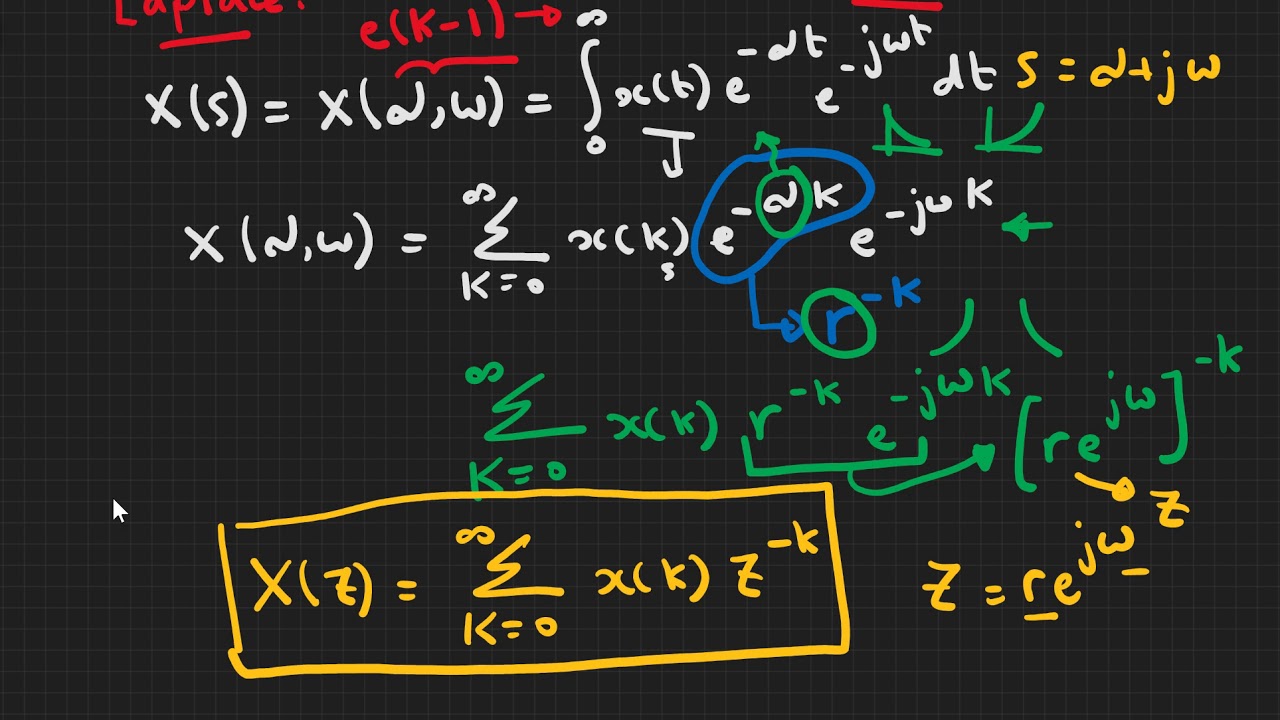 Laplace:
e(k-1) →
X(s) = X(σ,ω) = ∫₀^∞ x(t) e^{-σt} e^{-jωt} dt s = σ+jω
X(σ,ω) = ∑_{k=0}^{∞} x(k) e^{-σk} e^{-jωk} ←
r^{-k}
∑_{k=0}^{∞} x(k) r^{-k} e^{-jωk} → [re^{jω}]^{-k}
→ z
X(z) = ∑_{k=0}^{∞} x(k) z^{-k} z = re^{jω}